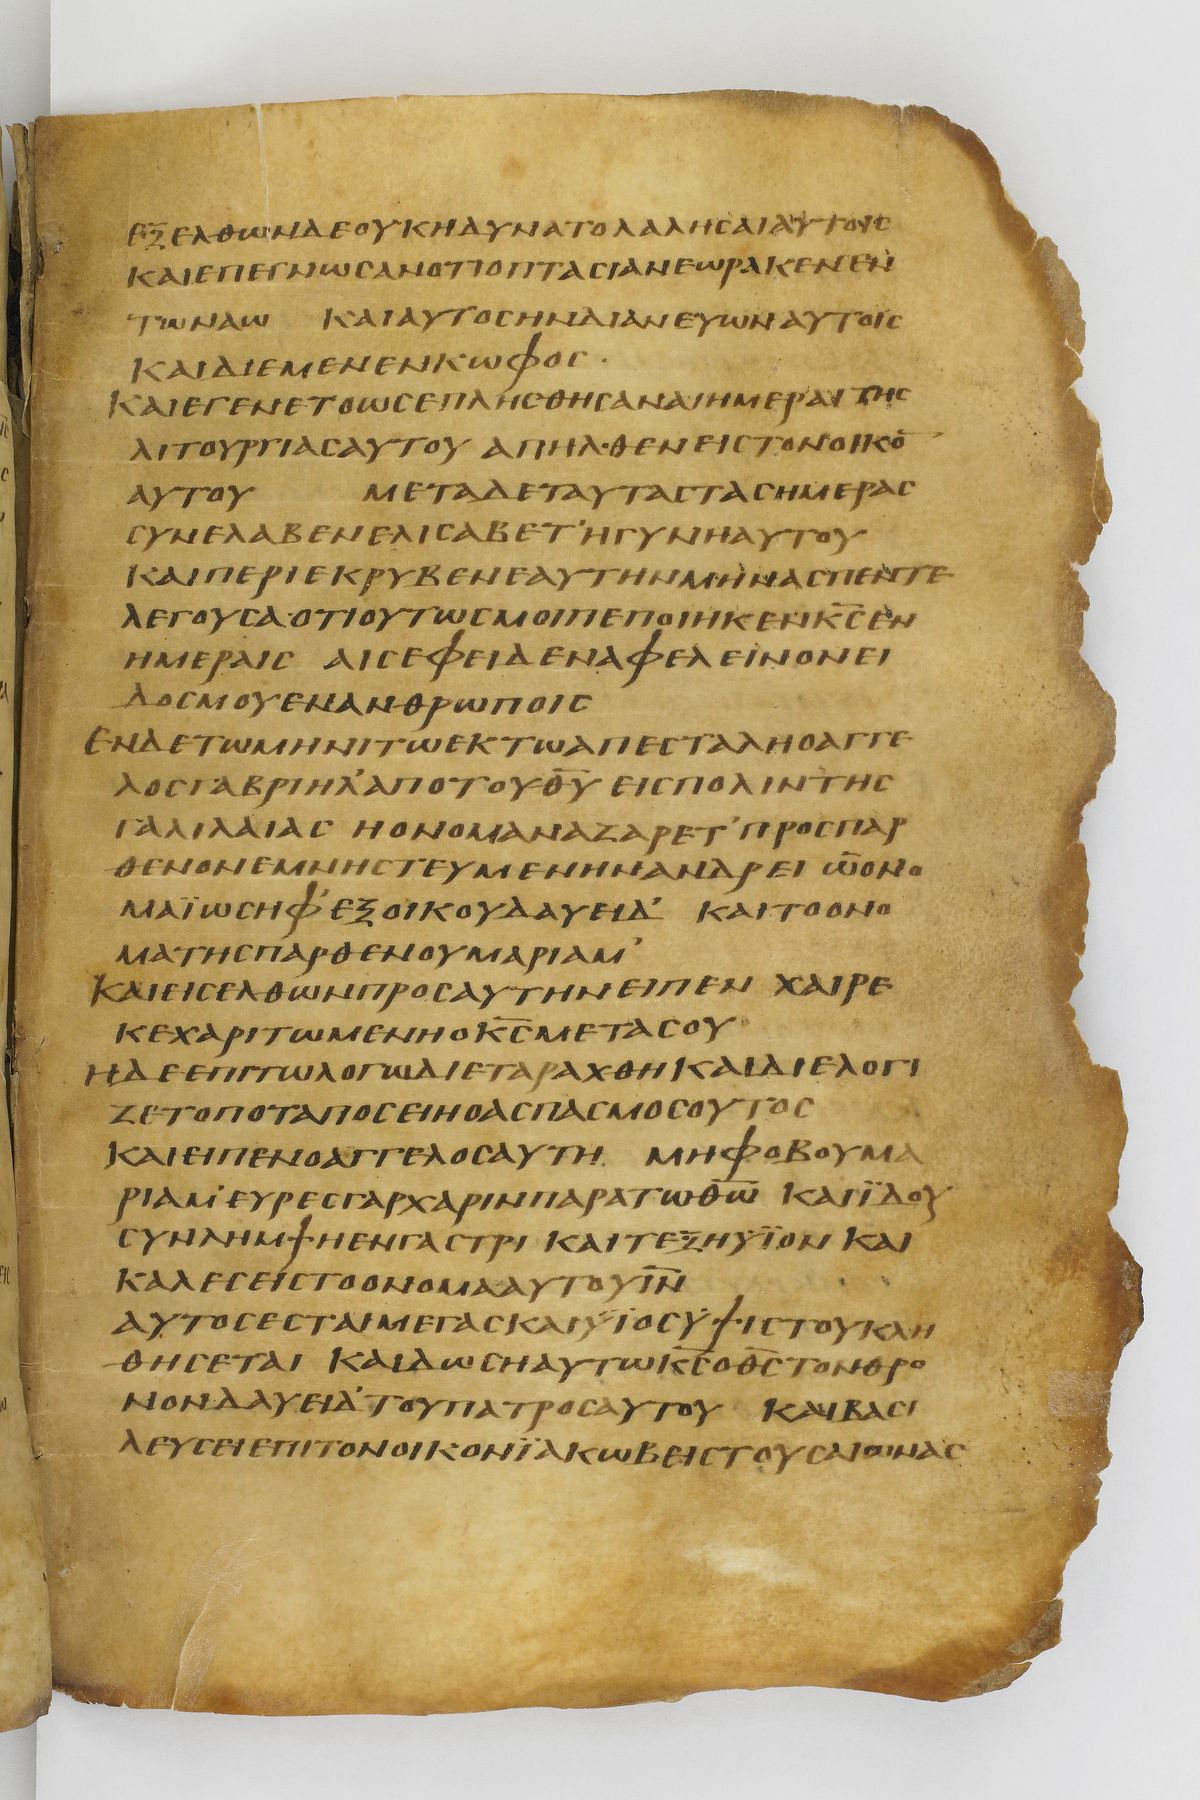 ΕΞΕΛΘΩΝΔΕΟΥΚΗΔΥΝΑΤΟΛΑΛΗΣΑΙΑΥΤΟΙΣ
ΚΑΙΕΠΕΓΝΩΣΑΝΟΤΙΟΠΤΑΣΙΑΝΕΩΡΑΚΕΝΕΝ
ΤΩΝΑΩ ΚΑΙΑΥΤΟΣΗΝΔΙΑΝΕΥΩΝΑΥΤΟΙΣ
ΚΑΙΔΙΕΜΕΝΕΝΚΩΦΟΣ·
ΚΑΙΕΓΕΝΕΤΟΩΣΕΠΛΗΣΘΗΣΑΝΑΙΗΜΕΡΑΙΤΗΣ
ΛΙΤΟΥΡΓΙΑΣΑΥΤΟΥ ΑΠΗΛΘΕΝΕΙΣΤΟΝΟΙΚΟ̅
ΑΥΤΟΥ ΜΕΤΑΔΕΤΑΥΤΑΣΤΑΣΗΜΕΡΑΣ
ΣΥΝΕΛΑΒΕΝΕΛΙΣΑΒΕΤ’ΗΓΥΝΗΑΥΤΟΥ
ΚΑΙΠΕΡΙΕΚΡΥΒΕΝΕΑΥΤΗΝΜΗΝΑΣΠΕΝΤΕ
ΛΕΓΟΥΣΑ·ΟΤΙΟΥΤΩΣΜΟΙΠΕΠΟΙΗΚΕΝΚ̅Σ̅ΕΝ
ΗΜΕΡΑΙΣ ΑΙΣΕΦΕΙΔΕΝΑΦΕΛΕΙΝΟΝΕΙ
ΔΟΣΜΟΥΕΝΑΝΘΡΩΠΟΙΣ
ΕΝΔΕΤΩΜΗΝΙΤΩΕΚΤΩΑΠΕΣΤΑΛΗΟΑΓΓΕ
ΛΟΣΓΑΒΡΙΗΛ’ΑΠΟΤΟΥΘ̅Υ̅ ΕΙΣΠΟΛΙΝΤΗΣ
ΓΑΛΙΛΑΙΑΣ ΗΟΝΟΜΑΝΑΖΑΡΕΤ’ΠΡΟΣΠΑΡ
ΘΕΝΟΝΕΜΝΗΣΤΕΥΜΕΝΗΝΑΝΔΡΕΙ Ω̅ΟΝΟ
ΜΑΪΩΣΗΦ’ΕΞΟΙΚΟΥΔΑΥΕΙΔ’ ΚΑΙΤΟΟΝΟ
ΜΑΤΗΣΠΑΡΘΕΝΟΥΜΑΡΙΑΜ’
ΚΑΙΕΙΣΕΛΘΩΝΠΡΟΣΑΥΤΗΝΕΙΠΕΝ ΧΑΙΡΕ
ΚΕΧΑΡΙΤΩΜΕΝΗΟΚ̅Σ̅ΜΕΤΑΣΟΥ
ΗΔΕΕΠΙΤΩΛΟΓΩΔΙΕΤΑΡΑΧΘΗΚΑΙΔΙΕΛΟΓΙ
ΖΕΤΟΠΟΤΑΠΟΣΕΙΗΟΑΣΠΑΣΜΟΣΟΥΤΟΣ
ΚΑΙΕΙΠΕΝΟΑΓΓΕΛΟΣΑΥΤΗ ΜΗΦΟΒΟΥΜΑ
ΡΙΑΜ’ΕΥΡΕΣΓΑΡΧΑΡΙΝΠΑΡΑΤΩΘ̅Ω̅ ΚΑΙΪΔΟΥ
ΣΥΝΛΗΜΨΗΕΝΓΑΣΤΡΙ ΚΑΙΤΕΞΗΫΪΟΝ ΚΑΙ
ΚΑΛΕΣΕΙΣΤΟΟΝΟΜΑΑΥΤΟΥΙ̅Ν̅
ΑΥΤΟΣΕΣΤΑΙΜΕΓΑΣΚΑΙΫΪΟΣΫΨΙΣΤΟΥΚΛΗ
ΘΗΣΕΤΑΙ ΚΑΙΔΩΣΗΑΥΤΩΚ̅Σ̅ΟΘ̅Σ̅ΤΟΝΘΡΟ
ΝΟΝΔΑΥΕΙΔ’ΤΟΥΠΑΤΡΟΣΑΥΤΟΥ ΚΑΙΒΑΣΙ
ΛΕΥΣΕΙΕΠΙΤΟΝΟΙΚΟΝΪΑΚΩΒΕΙΣΤΟΥΣΑΙΩΝΑΣ